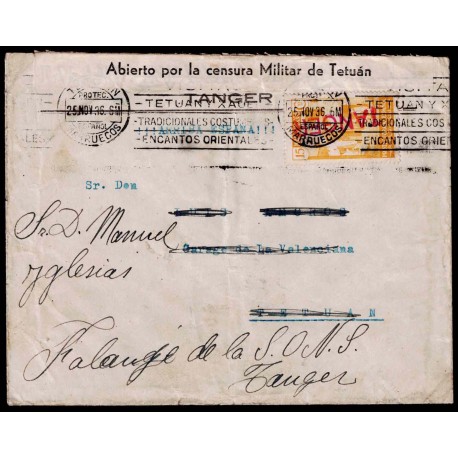 Abierto por la censura Militar de Tetuán
PROTEC.
25 NOV 36. 6M
ESPAÑOL
MARRUECOS
TANGER
TETUAN Y XAU
TRADICIONALES COSTU
ENCANTOS ORIENTAL
!!!ARRIBA ESPAÑA!!!
25 NOV 36. 6M
MARRUECOS
TETUAN Y X
TRADICIONALES COS
ENCANTOS ORIE
Sr. Don
Sr. D. Manuel
Garage de La Valenciana
Yglesias
TETUAN
Falange de la S.O.N.S.
Tanger